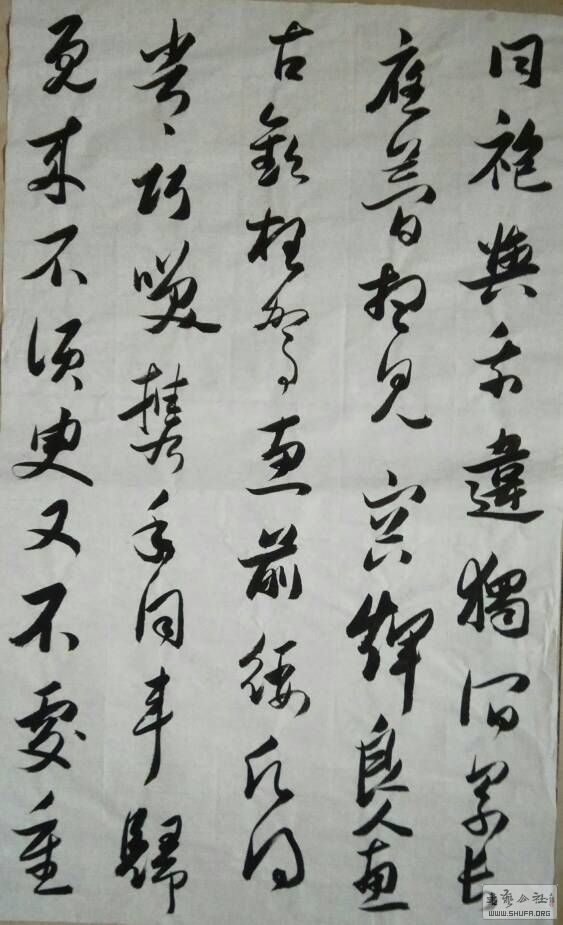 同袍與我違獨宿累长
夜夢想見容輝良人惟
古歡枉駕惠前綏願得
常巧咲攜手同車歸
既来不須臾又不處重
書藝公社
WWW.SHUFA.ORG